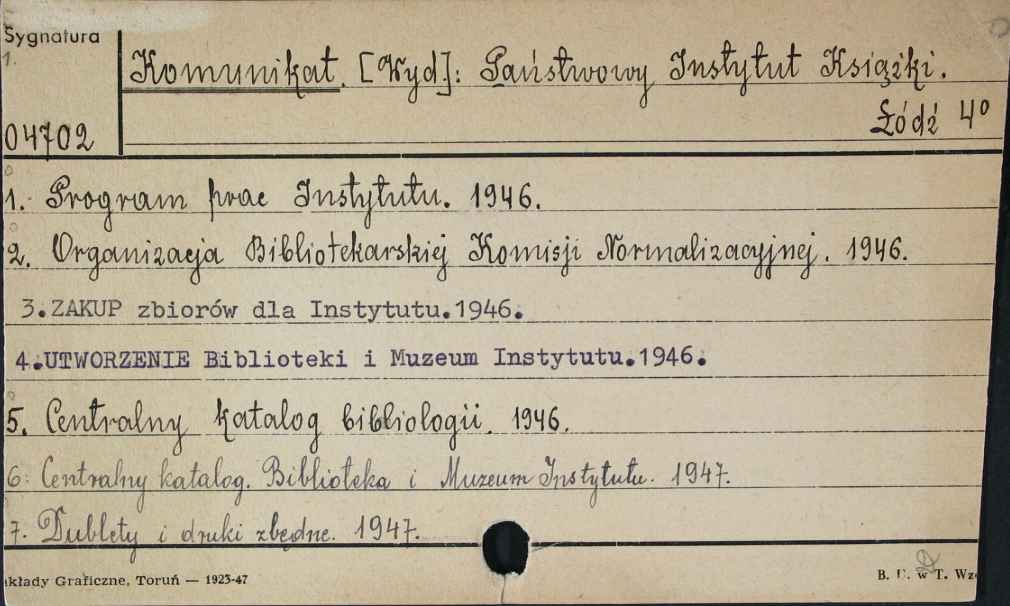 Sygnatura
1.
Komunikat. [Wyd]: Państwowy Instytut Książki.
Łódź 4°
04702
1. Program prac Instytutu. 1946.
2. Organizacja Bibliotekarskiej Komisji Normalizacyjnej. 1946.
3. ZAKUP zbiorów dla Instytutu.1946.
4.UTWORZENIE Biblioteki i Muzeum Instytutu.1946.
5. Centralny katalog bibliologii. 1946.
6: Centralny katalog. Biblioteka i Muzeum Instytutu. 1947.
7. Dublety i druki zbędne. 1947.
akłady Graficzne, Toruń — 1923-47
B. U. w T. Wz